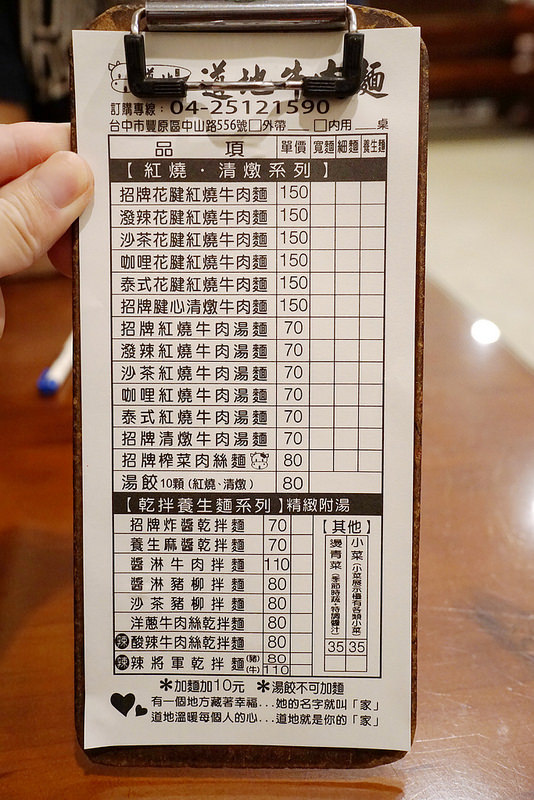 道地牛肉麵
訂購專線：04-25121590
台中市豐原區中山路556號□外帶___ □內用___桌
品項 單價 寬麵 細麵 養生麵
【紅燒．清燉系列】
招牌花腱紅燒牛肉麵 150
潑辣花腱紅燒牛肉麵 150
沙茶花腱紅燒牛肉麵 150
咖哩花腱紅燒牛肉麵 150
泰式花腱紅燒牛肉麵 150
招牌腱心清燉牛肉麵 150
招牌紅燒牛肉湯麵 70
潑辣紅燒牛肉湯麵 70
沙茶紅燒牛肉湯麵 70
咖哩紅燒牛肉湯麵 70
泰式紅燒牛肉湯麵 70
招牌清燉牛肉湯麵 70
招牌榨菜肉絲麵 80
湯餃10顆(紅燒、清燉) 80
【乾拌養生麵系列】精緻附湯
招牌炸醬乾拌麵 70
養生麻醬乾拌麵 70
醬淋牛肉拌麵 110
醬淋豬柳拌麵 80
沙茶豬柳拌麵 80
洋蔥牛肉絲乾拌麵 80
辣 酸辣牛肉絲乾拌麵 80
辣 辣將軍乾拌麵 (豬) 80
(牛) 110
【其他】
小菜(小菜展示櫃有各類小菜) 35
燙青菜(季節時蔬、特調醬汁) 35
＊加麵加10元 ＊湯餃不可加麵
有一個地方藏著幸福...她的名字就叫「家」
道地溫暖每個人的心...道地就是你的「家」